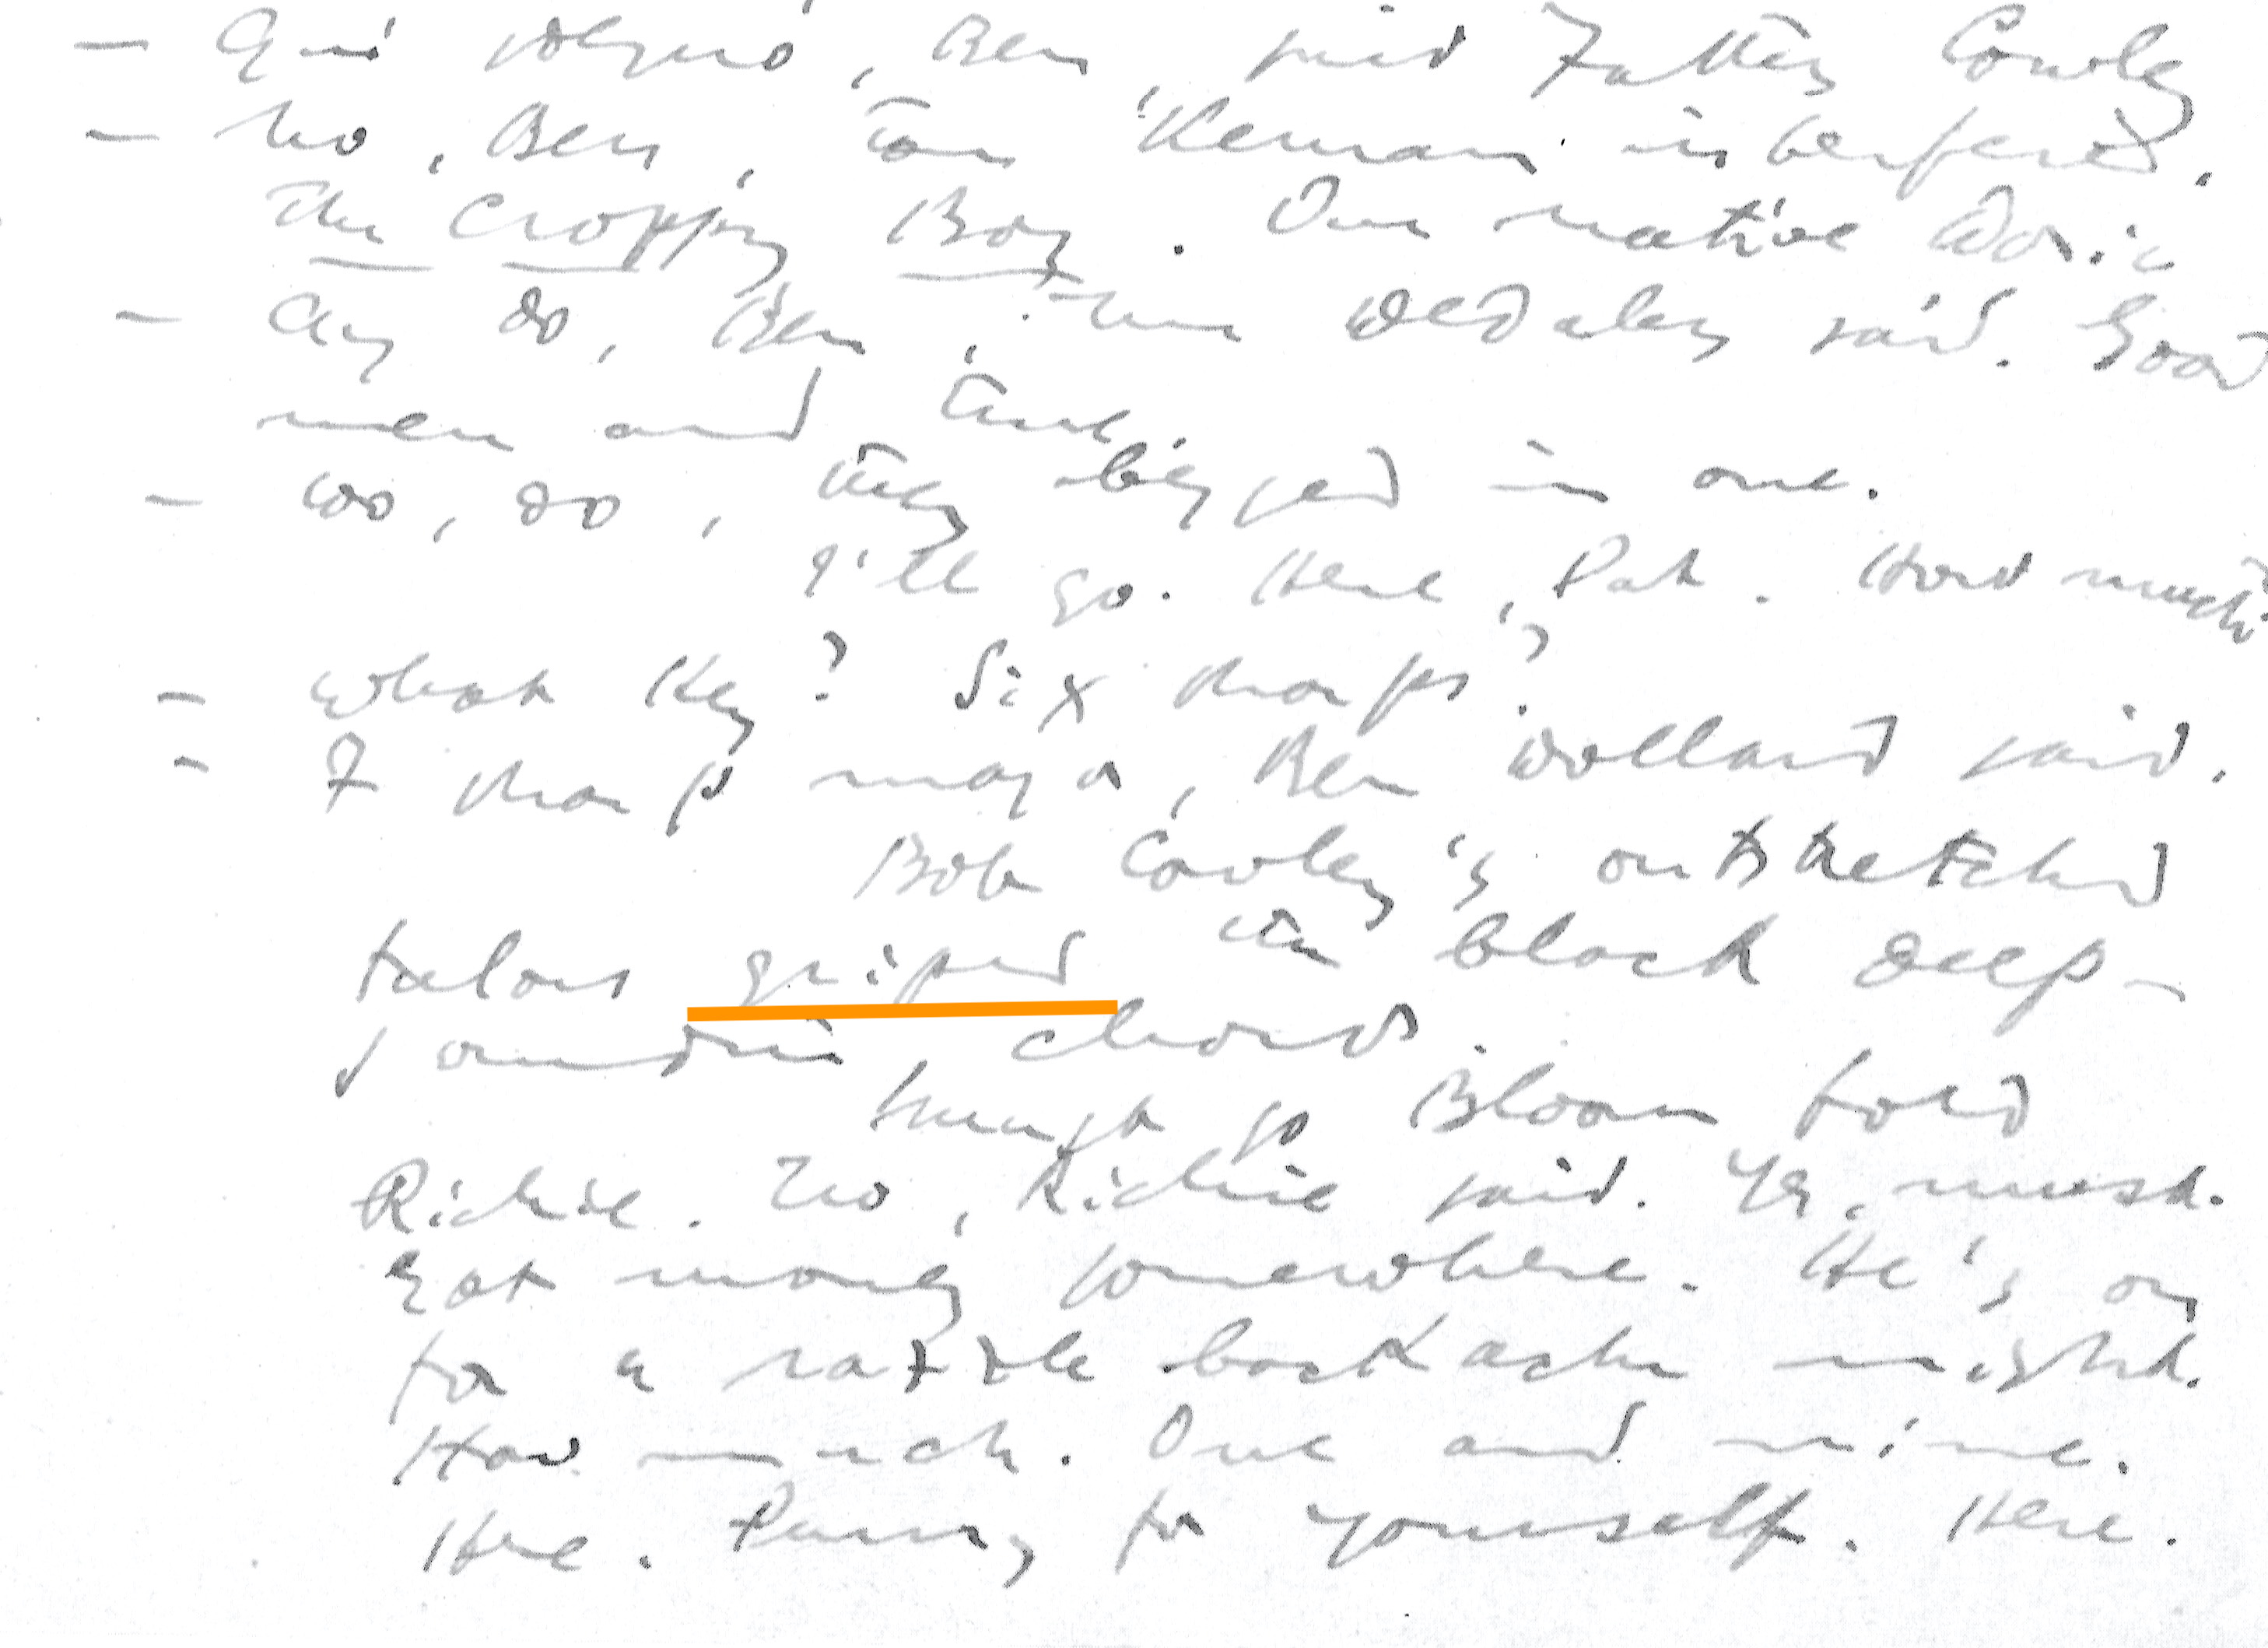 — Qui sdegno, Ben, said Father Cowley.
— No, Ben, Tom Kernan interfered.
The Croppy Boy. Our native Doric
— Ay do, Ben, Mr Dedalus said. Good
men and true.
— Do, do, they begged in one.
I'll go. Here, Pat. How much?
— What key? Six sharps?
— F sharp major, Ben Dollard said.
Bob Cowley's outstretched
talons griped the black deep-
sounding chords.
Must go Bloom told
Richie. No, Richie said. Yes, must.
Got money somewhere. He's on
for a razzle backache night.
How much. One and nine.
Here. Penny for yourself. Here.